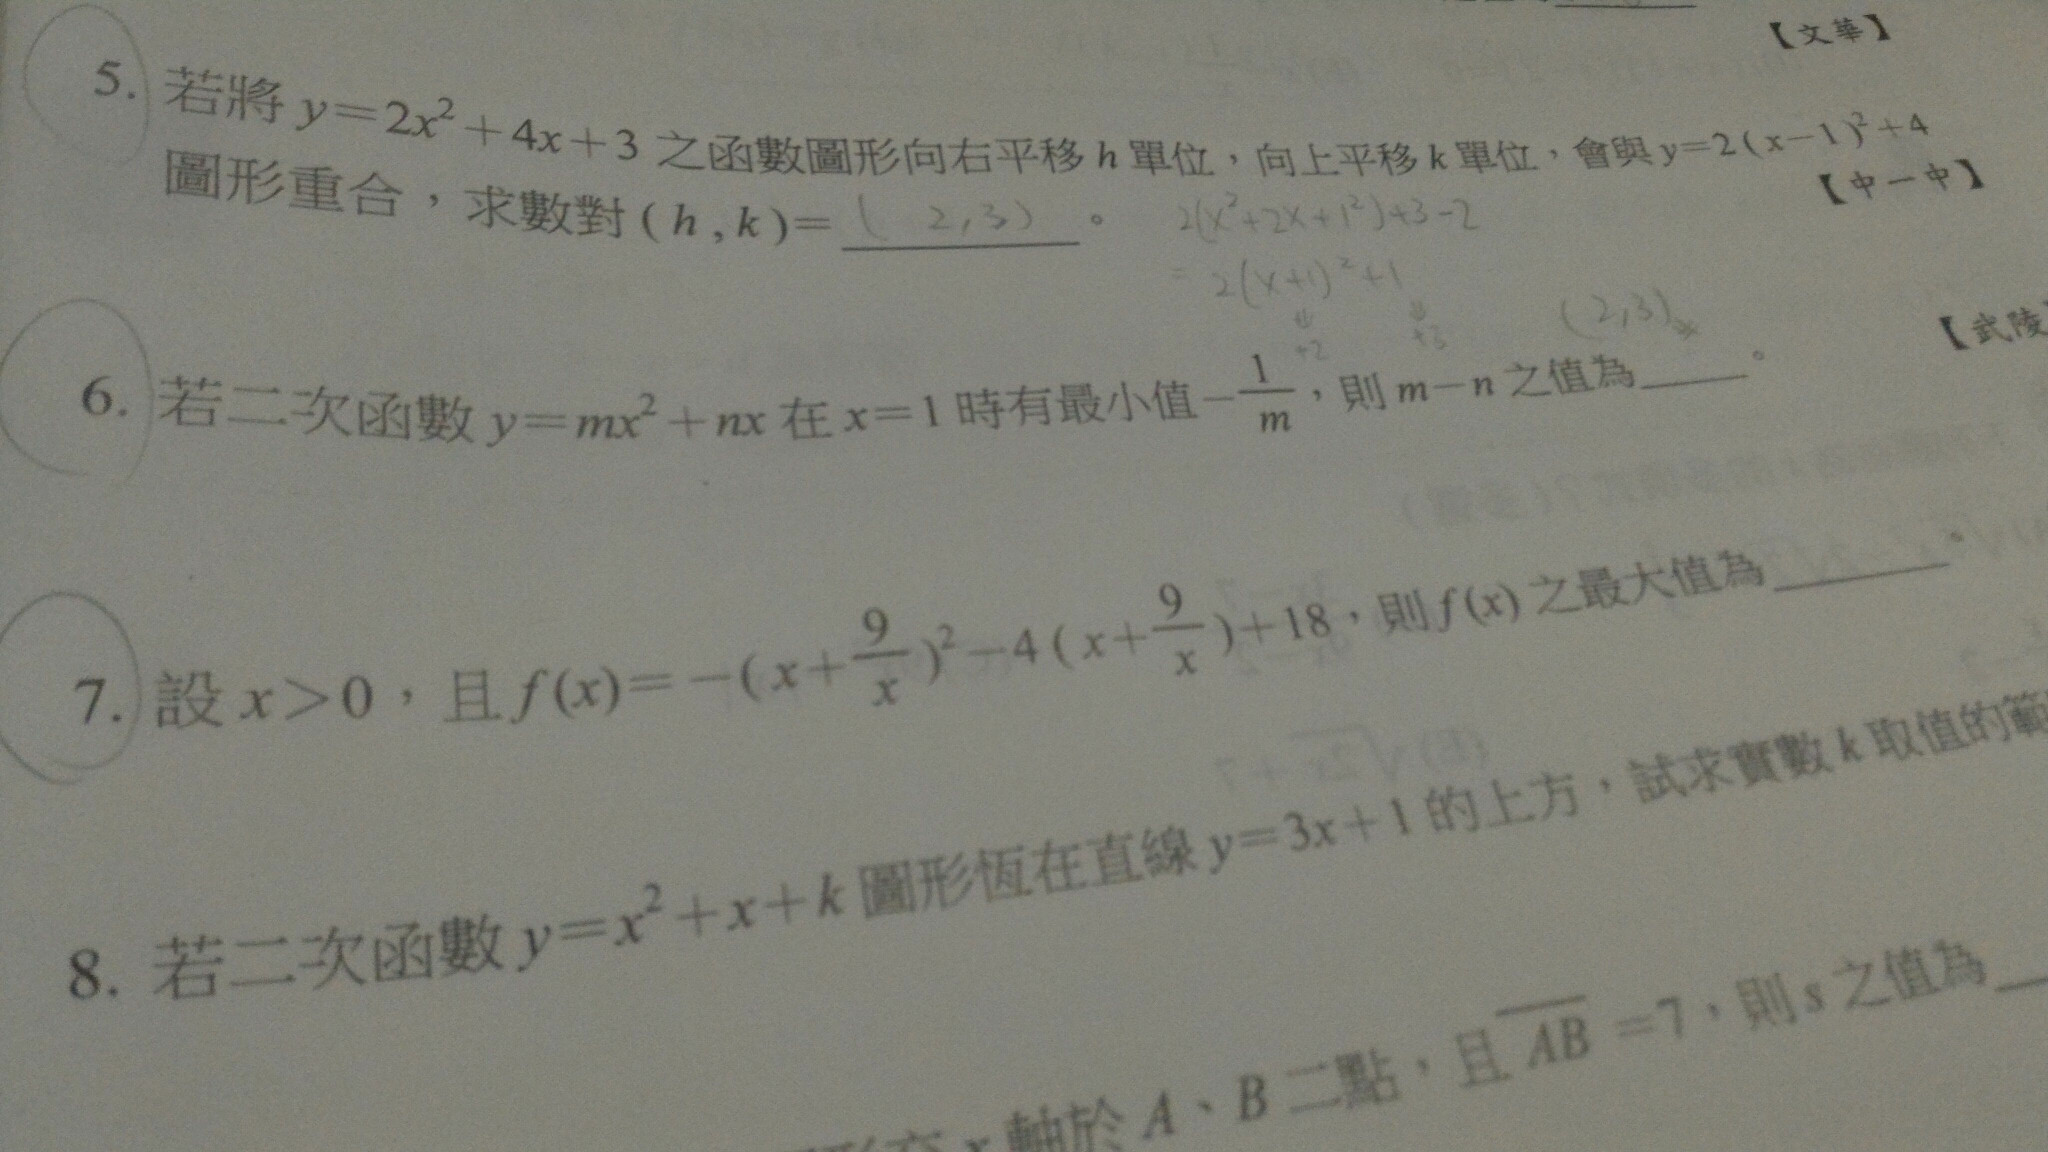 【文華】
5. 若將 y=2x²+4x+3 之函數圖形向右平移 h 單位，向上平移 k 單位，會與 y=2(x-1)²+4
圖形重合，求數對 (h,k)= ( 2,3) 。 【中一中】
2(x²+2x+1²)+3-2
= 2(x+1)²+1
⇓ +2 ⇓ +3 (2,3)#
6. 若二次函數 y=mx²+nx 在 x=1 時有最小值 -1/m，則 m-n 之值為____。 【武陵
7. 設 x>0，且 f(x)=-(x+9/x)²-4(x+9/x)+18，則 f(x) 之最大值為____。
8. 若二次函數 y=x²+x+k 圖形恆在直線 y=3x+1 的上方，試求實數 k 取值的範
x 軸於 A、B 二點，且 AB =7，則 s 之值為__